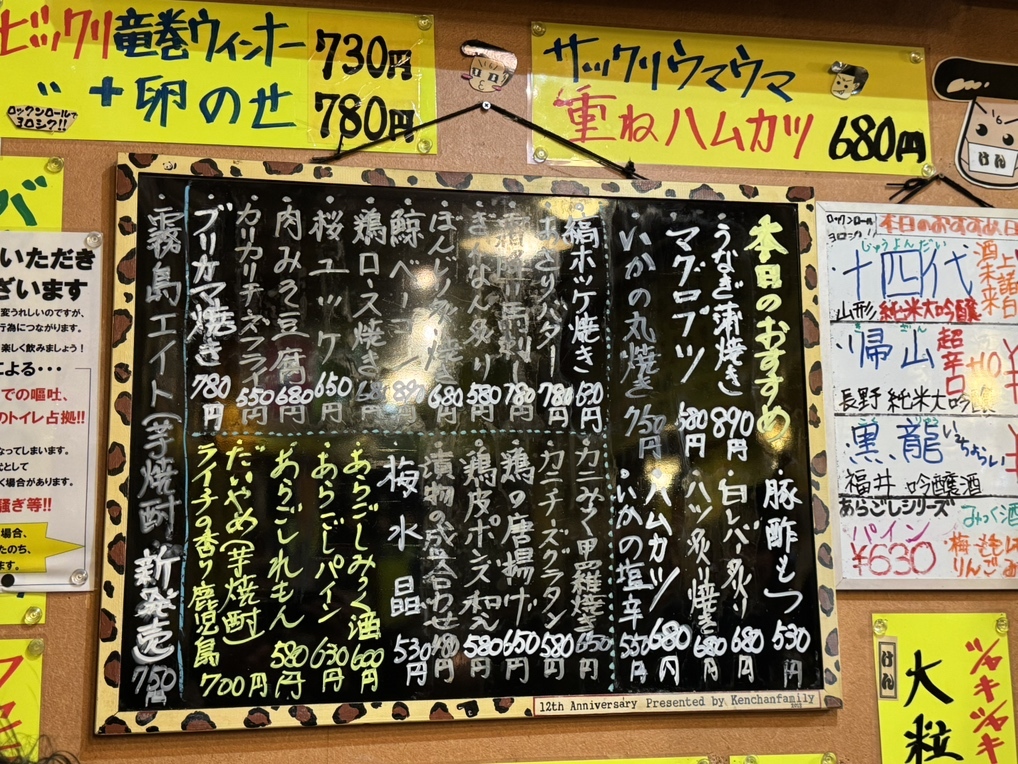 ビックリ竜巻ウィンナー 730円
〃 +卵のせ 780円
ロックンロールで
ヨロシク!!
サックリウマウマ
重ねハムカツ 680円
けん
本日のおすすめ
・うなぎ蒲焼き 890円
・マグロブツ 680円
・いかの丸焼き 750円
・豚酢もつ 530円
・白レバー炙り 680円
・ハツ炙り焼き 680円
・ハムカツ 680円
・いかの塩辛 550円
・縞ホッケ焼き 690円
バター 780円
780円
・ぎんなん炙り 580円
焼き 680円
・鯨ベーコン 890円
・鶏ロース焼き 680円
・桜ユッケ 650円
・肉みそ豆腐 680円
・カリカリチーズフライ 550円
・ブリカマ焼き 780円
・カニみそ甲羅焼き 650円
・カニチーズグラタン 580円
・鶏の唐揚げ 650円
・鶏皮ポンズ和え 580円
・漬物の盛合わせ 480円
・梅水晶 530円
・あらごしみっく酒 600円
・あらごしパイン 630円
・あらごしれもん 580円
・だいやめ(芋焼酎)
ライチの香り鹿児島 700円
・霧島エイト(芋焼酎)新発売 750円
12th Anniversary Presented by Kenchanfamily
バ
いただき
ざいます
変うれしいのですが、
行為につながります。
楽しく飲みましょう!
による・・・
での嘔吐、
のトイレ占拠!!
なってしまいます。
として
く場合があります。
騒ぎ等!!
場合、
たのち、
ます。
ロックンロール
ヨロシク!!
本日のおすすめ日
じゅうよんだい
十四代
山形 純米大吟醸
帰山 超辛口
長野 純米大吟醸
黒龍 いっちょらい
福井 吟醸酒
あらごしシリーズ
パイン
¥630
みっく酒
梅・もも
りんご
けん
大粒
ジャキジャキ